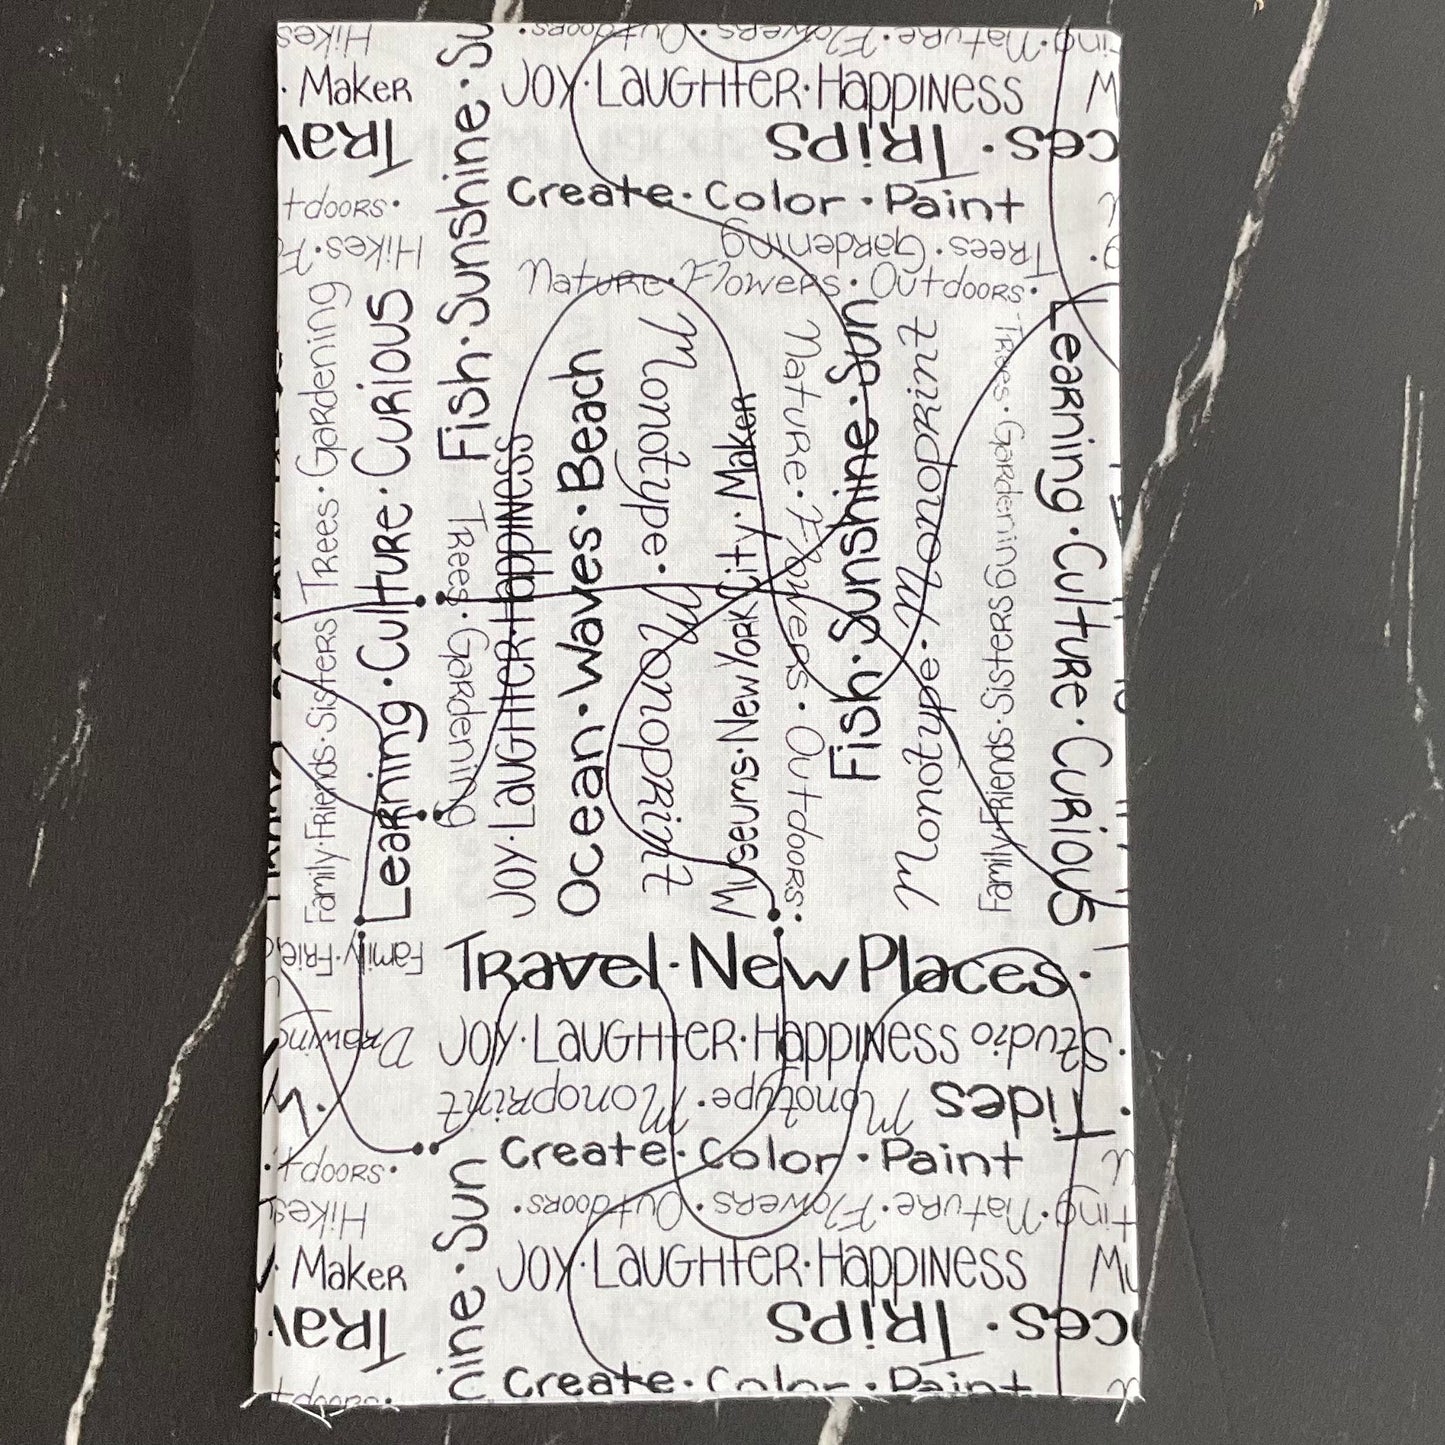 Hikes
· Outdoors · Flowers · Nature · ting
· Maker
Fish · Sunshine · Su
Joy · Laughter · Happiness
M
Trav
ces · Trips
tdoors ·
Create · Color · Paint
Hikes · F
Trees · Gardening
Nature · Flowers · Outdoors ·
Family · Friends · Sisters Trees · Gardening
Learning · Culture · Curious
Trees · Gardening
Joy · Laughter · Happiness
Ocean · Waves · Beach
Monotype · Monoprint
Museums · New York City · Maker
Nature · Flowers · Outdoors ·
Fish · Sunshine · Sun
Monotype · Monoprint
Trees · Gardening
Family · Friends · Sisters
Learning · Culture · Curious
Family · Frie
Travel · New Places ·
Drawing
Joy · Laughter · Happiness
Studio
Monotype · Monoprint
Tides
Create · Color · Paint
tdoors ·
Hikes
Nature · Flowers · Outdoors ·
ting
· Maker
ine · Sun
Joy · Laughter · Happiness
Mu
Trav
ces · Trips
tdoors
Create · Color · Paint